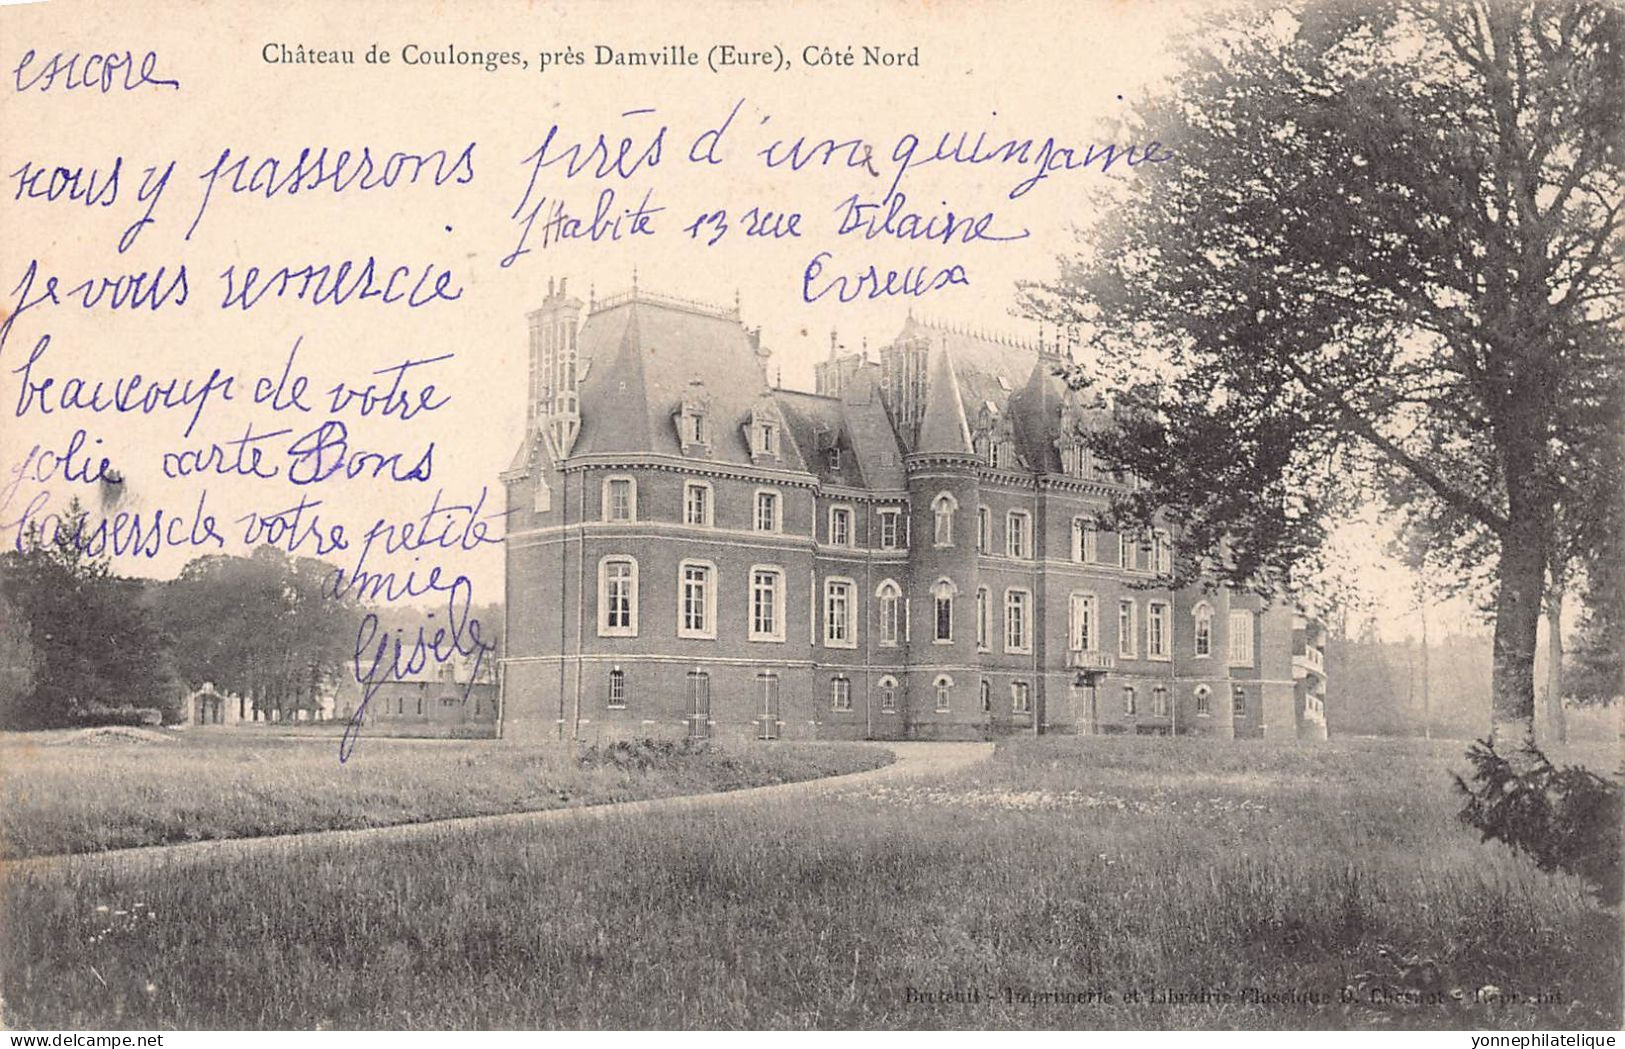 Château de Coulonges, près Damville (Eure), Côté Nord
encore
nous y passerons près d'une quinzaine
J'Habite 13 rue Vilaine
Evreux
je vous remercie
beaucoup de votre
jolie carte Bons
baisers de votre petite
amie
Gisèle
Breteuil - Imprimerie et Librairie Classique D. Chesnot - Repr. int.
yonnephilatelique